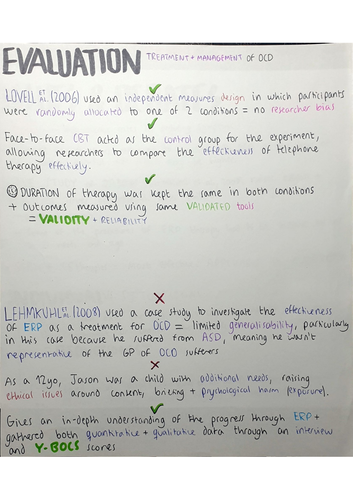 EVALUATION TREATMENT + MANAGEMENT OF OCD
LOVELL ET AL. (2006) used an independent measures design in which participants
were randomly allocated to one of 2 conditions = no researcher bias
Face-to-face CBT acted as the control group for the experiment,
allowing researchers to compare the effectiveness of telephone
therapy effectively.
DURATION of therapy was kept the same in both conditions
+ outcomes measured using same VALIDATED tools
= VALIDITY + RELIABILITY
LEHMKUHL ET AL (2008) used a case study to investigate the effectiveness
of ERP as a treatment for OCD = limited generalisability, particularly
in this case because he suffered from ASD, meaning he wasn't
representative of the GP of OCD sufferers
As a 12yo, Jason was a child with additional needs, raising
ethical issues around consent, briefing + psychological harm (exposure).
Gives an in-depth understanding of the progress through ERP +
gathered both quantitative + qualitative data through an interview
and Y-BOCS scores